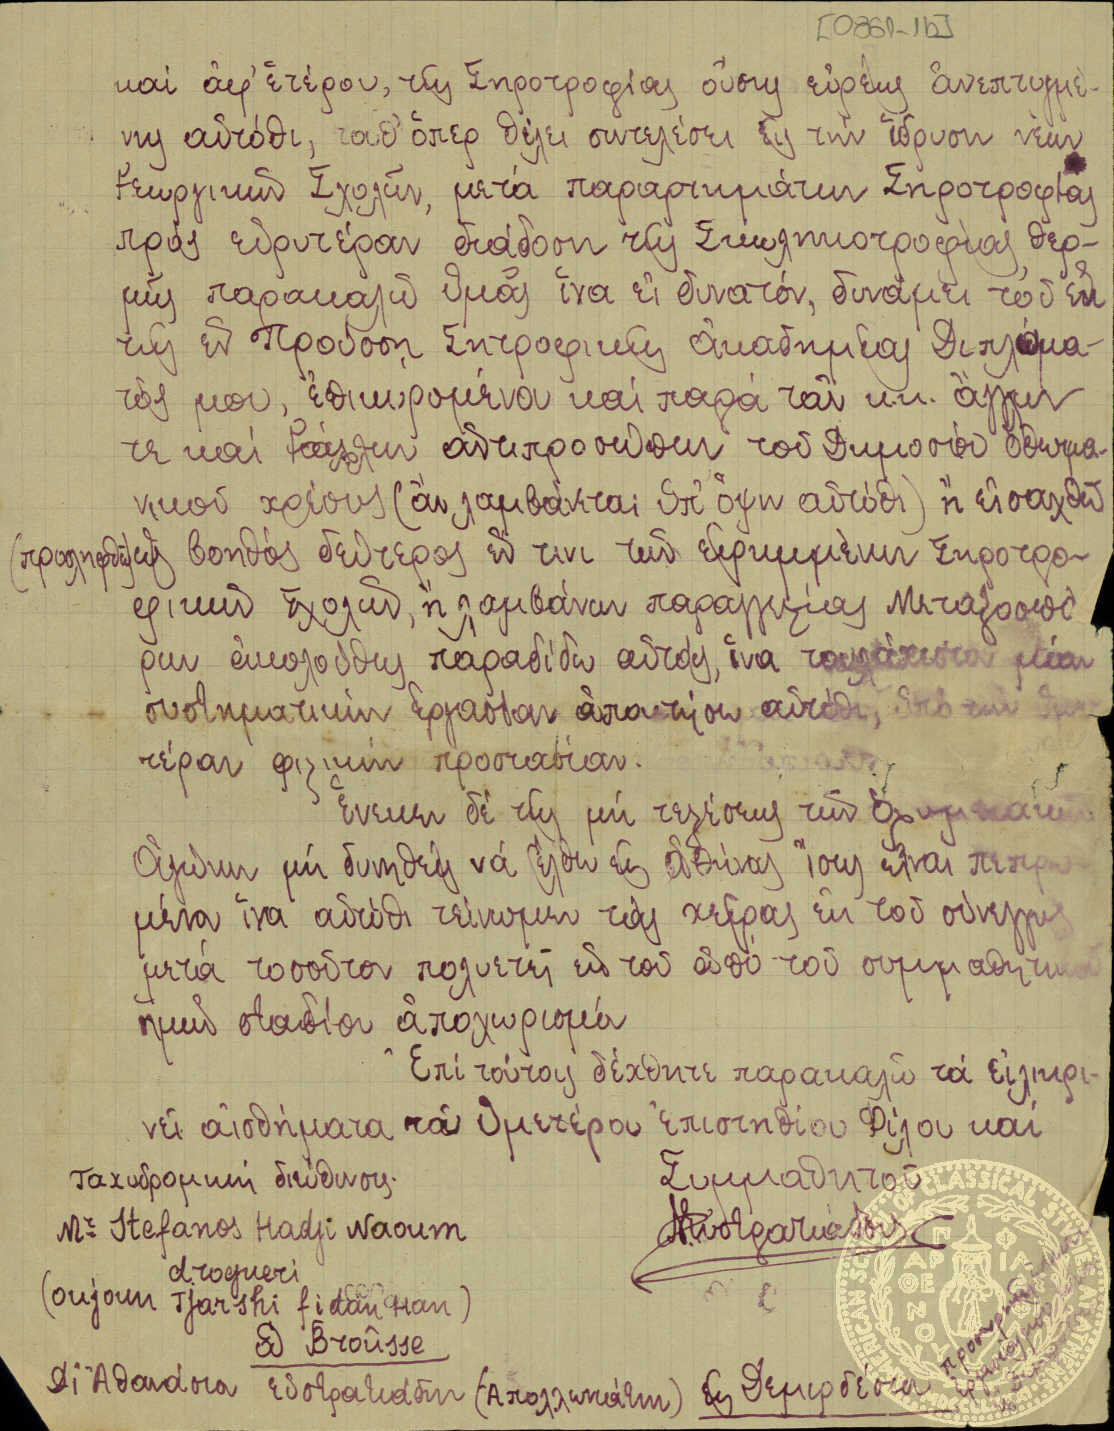 [0861-1b]
καί ἀφ' ἑτέρου, τῆς Σηροτροφίας οὔσης εὐρέως ἀνεπτυγμέ-
νης αὐτόθι, καθ' ὅπερ θέλει συντελέσει εἰς τήν ἵδρυσιν νέων
Γεωργικῶν Σχολῶν, μετά παραρτημάτων Σηροτροφίας
πρός εὐρυτέραν διάδοσιν τῆς Σκωληκοτροφίας θερ-
μῶς παρακαλῶ ὑμᾶς ἵνα εἰ δυνατόν, δυνάμει τοῦ ἐκ
τῆς ἐν Προύσση Σητροφικῆς ἀκαδημίας Διπλώμα-
τός μου, ἐπικυρομένου καί παρά τῶν κ.κ.
τε καί ἀντιπροσώπων τοῦ Δημοσίου Ὀθωμα-
νικοῦ χρέους (ἄν λαμβάνται ὑπ' ὄψιν αὐτόθι) ἤ εἰσαχθῶ
(προσληφθῶ) ὡς βοηθός δεύτερος ἔν τινι τῶν εἰρημμένων Σηροτρο-
φικῶν Σχολῶν, ἤ λαμβάνων παραγγελίας Μεταξοσπό
ρων ἀκολούθως παραδίδω αὐτούς, ἵνα τουλάχιστον μίαν
συστηματικήν ἐργασίαν ἀποκτήσω αὐτόθι, ὑπό τήν ὑμε
τέραν φιλικήν προστασίαν.
Ἕνεκεν δέ τῆς μή τελέσεως τῶν Ὀλυμπιακῶν
Ἀγώνων μή δυνηθείς νά ἔλθω εἰς Ἀθήνας ἴσως εἶναι πεπρω
μένον ἵνα αὐτόθι τείνωμεν τάς χεῖρας ἐκ τοῦ σύνεγγυς
μετά τοσοῦτον πολυετῆ ἐκ τοῦ ἀπό τοῦ συμμαθητικοῦ
ἡμῶν σταδίου ἀποχωρισμόν
Ἐπί τούτοις δέχθητε παρακαλῶ τά εἰλικρι-
νεῖ αἰσθήματα τοῦ ὑμετέρου ἐπιστηθίου Φίλου καί
Συμμαθητοῦ
Ταχυδρομική διεύθυνσις.
Mr Stefanos Hadji Naoum
drogueri
(ουζουν Tjarshi fidan Han)
ἐν Broûsse
Δι' Ἀθανάσιον Εὐστρατιάδην (Ἀπολλωνιάτην) εἰς Δεμιρδέσιον